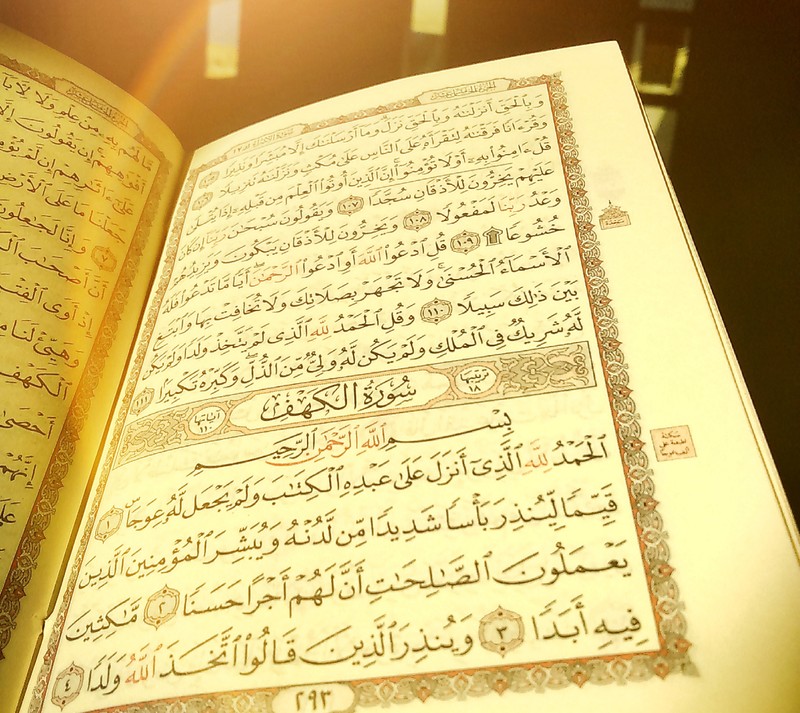 وَبِٱلْحَقِّ أَنزَلْنَٰهُ وَبِٱلْحَقِّ نَزَلَ وَمَآ أَرْسَلْنَٰكَ إِلَّا مُبَشِّرًا وَنَذِيرًا ١٠٥
وَقُرْءَانًا فَرَقْنَٰهُ لِتَقْرَأَهُۥ عَلَى ٱلنَّاسِ عَلَىٰ مُكْثٍ وَنَزَّلْنَٰهُ تَنزِيلًا ١٠٦
قُلْ ءَامِنُوا۟ بِهِۦٓ أَوْ لَا تُؤْمِنُوٓا۟ إِنَّ ٱلَّذِينَ أُوتُوا۟ ٱلْعِلْمَ مِن قَبْلِهِۦٓ إِذَا يُتْلَىٰ
عَلَيْهِمْ يَخِرُّونَ لِلْأَذْقَانِ سُجَّدًا ١٠٧ وَيَقُولُونَ سُبْحَٰنَ رَبِّنَآ إِن كَانَ
وَعْدُ رَبِّنَا لَمَفْعُولًا ١٠٨ وَيَخِرُّونَ لِلْأَذْقَانِ يَبْكُونَ وَيَزِيدُهُمْ
خُشُوعًا ۩ ١٠٩ قُلِ ٱدْعُوا۟ ٱللَّهَ أَوِ ٱدْعُوا۟ ٱلرَّحْمَٰنَ أَيًّا مَّا تَدْعُوا۟ فَلَهُ
ٱلْأَسْمَآءُ ٱلْحُسْنَىٰ وَلَا تَجْهَرْ بِصَلَاتِكَ وَلَا تُخَافِتْ بِهَا وَٱبْتَغِ
بَيْنَ ذَٰلِكَ سَبِيلًا ١١٠ وَقُلِ ٱلْحَمْدُ لِلَّهِ ٱلَّذِى لَمْ يَتَّخِذْ وَلَدًا وَلَمْ يَكُن
لَّهُۥ شَرِيكٌ فِى ٱلْمُلْكِ وَلَمْ يَكُن لَّهُۥ وَلِىٌّ مِّنَ ٱلذُّلِّ وَكَبِّرْهُ تَكْبِيرًا ١١١
ترتيبها ١٨ سُورَةُ ٱلْكَهْفِ آياتها ١١٠
بِسْمِ ٱللَّهِ ٱلرَّحْمَٰنِ ٱلرَّحِيمِ
ٱلْحَمْدُ لِلَّهِ ٱلَّذِىٓ أَنزَلَ عَلَىٰ عَبْدِهِ ٱلْكِتَٰبَ وَلَمْ يَجْعَل لَّهُۥ عِوَجَاۜ ١
قَيِّمًا لِّيُنذِرَ بَأْسًا شَدِيدًا مِّن لَّدُنْهُ وَيُبَشِّرَ ٱلْمُؤْمِنِينَ ٱلَّذِينَ
يَعْمَلُونَ ٱلصَّٰلِحَٰتِ أَنَّ لَهُمْ أَجْرًا حَسَنًا ٢ مَّٰكِثِينَ
فِيهِ أَبَدًا ٣ وَيُنذِرَ ٱلَّذِينَ قَالُوا۟ ٱتَّخَذَ ٱللَّهُ وَلَدًا ٤
٢٩٣
مَّا لَهُم بِهِۦ مِنْ عِلْمٍ وَلَا لِـَٔابَآ
أَفْوَٰهِهِمْ إِن يَقُولُونَ إِلَّا
عَلَىٰٓ ءَاثَٰرِهِمْ إِن لَّمْ يُؤْمِ
جَعَلْنَا مَا عَلَى ٱلْأَرْضِ
٧ وَإِنَّا لَجَٰعِلُونَ
أَنَّ أَصْحَٰبَ ٱلْ
إِذْ أَوَى ٱلْفِتْ
وَهَيِّئْ لَنَا مِ
ٱلْكَهْفِ
أَحْصَىٰ
إِنَّهُمْ